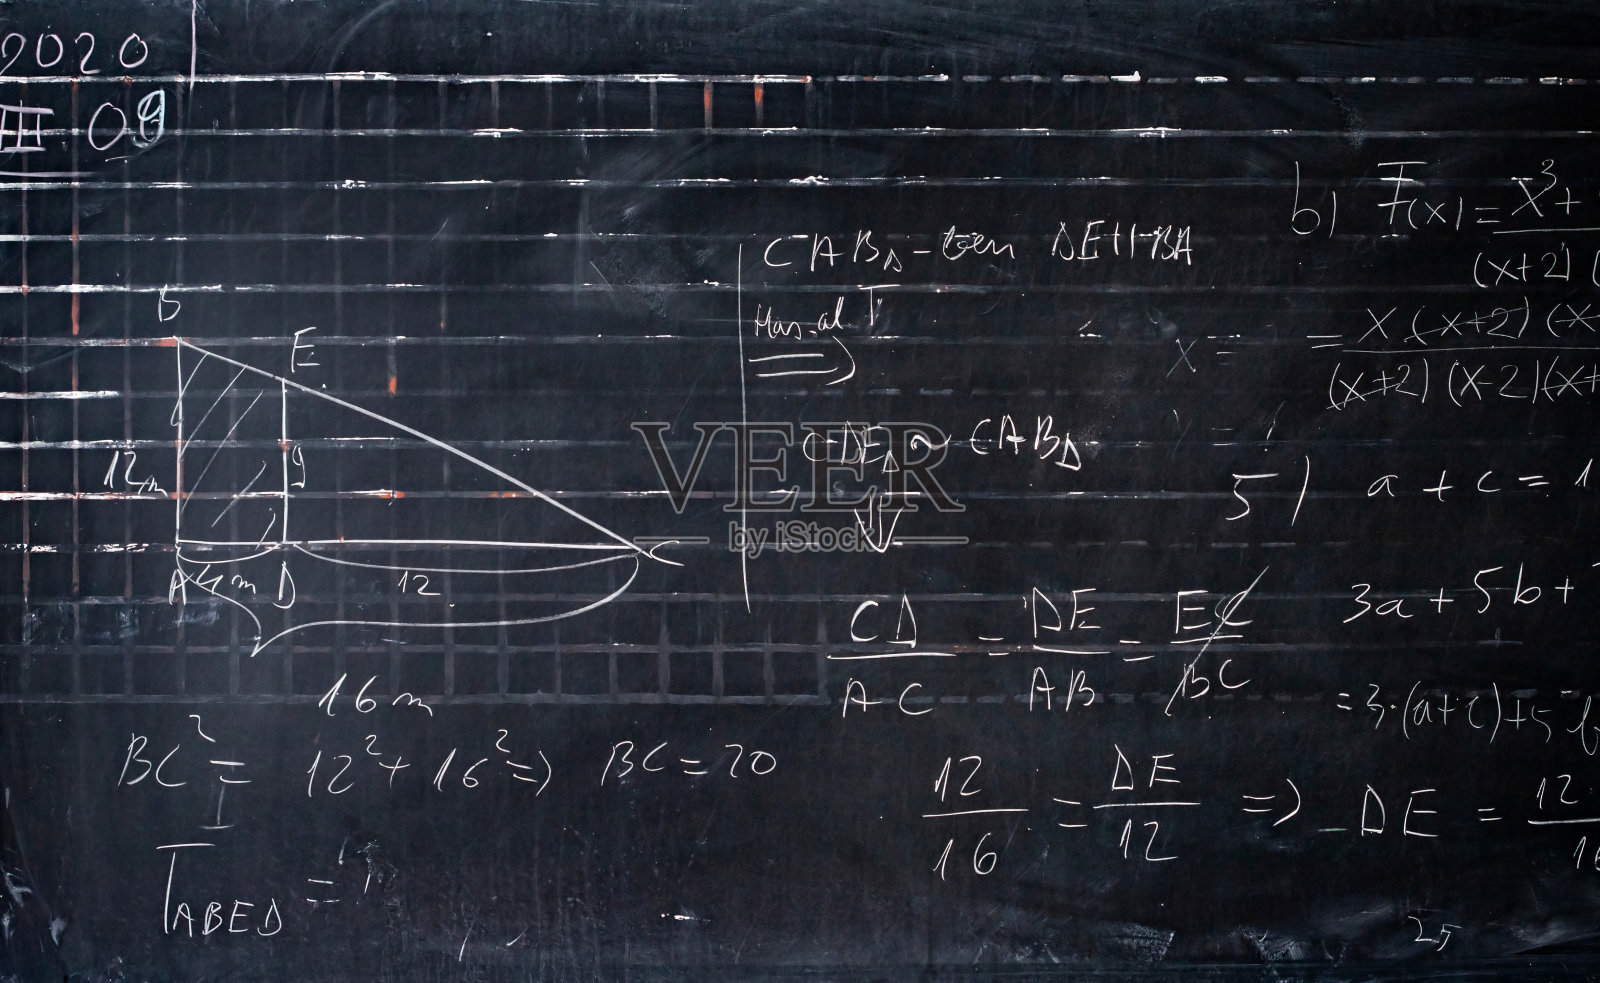 2020
III. 09
B
E
12m
9
A 4m D
12
C
16m
BC² = 12² + 16² ⇒ BC = 20
T ABED =
CAB△-ben DE || BA
Has.al T
⇒
CDE△ ~ CAB△
⇓
CD/AC = DE/AB = EC/BC
12/16 = DE/12 ⇒ DE = 12
16
b) f(x) = x³ +
(x+2) (
x =
= x (x+2) (x
(x+2) (x-2)(x+
5) a + c = 1
3a + 5b +
= 3·(a+c)+5b
VEER
by iStock